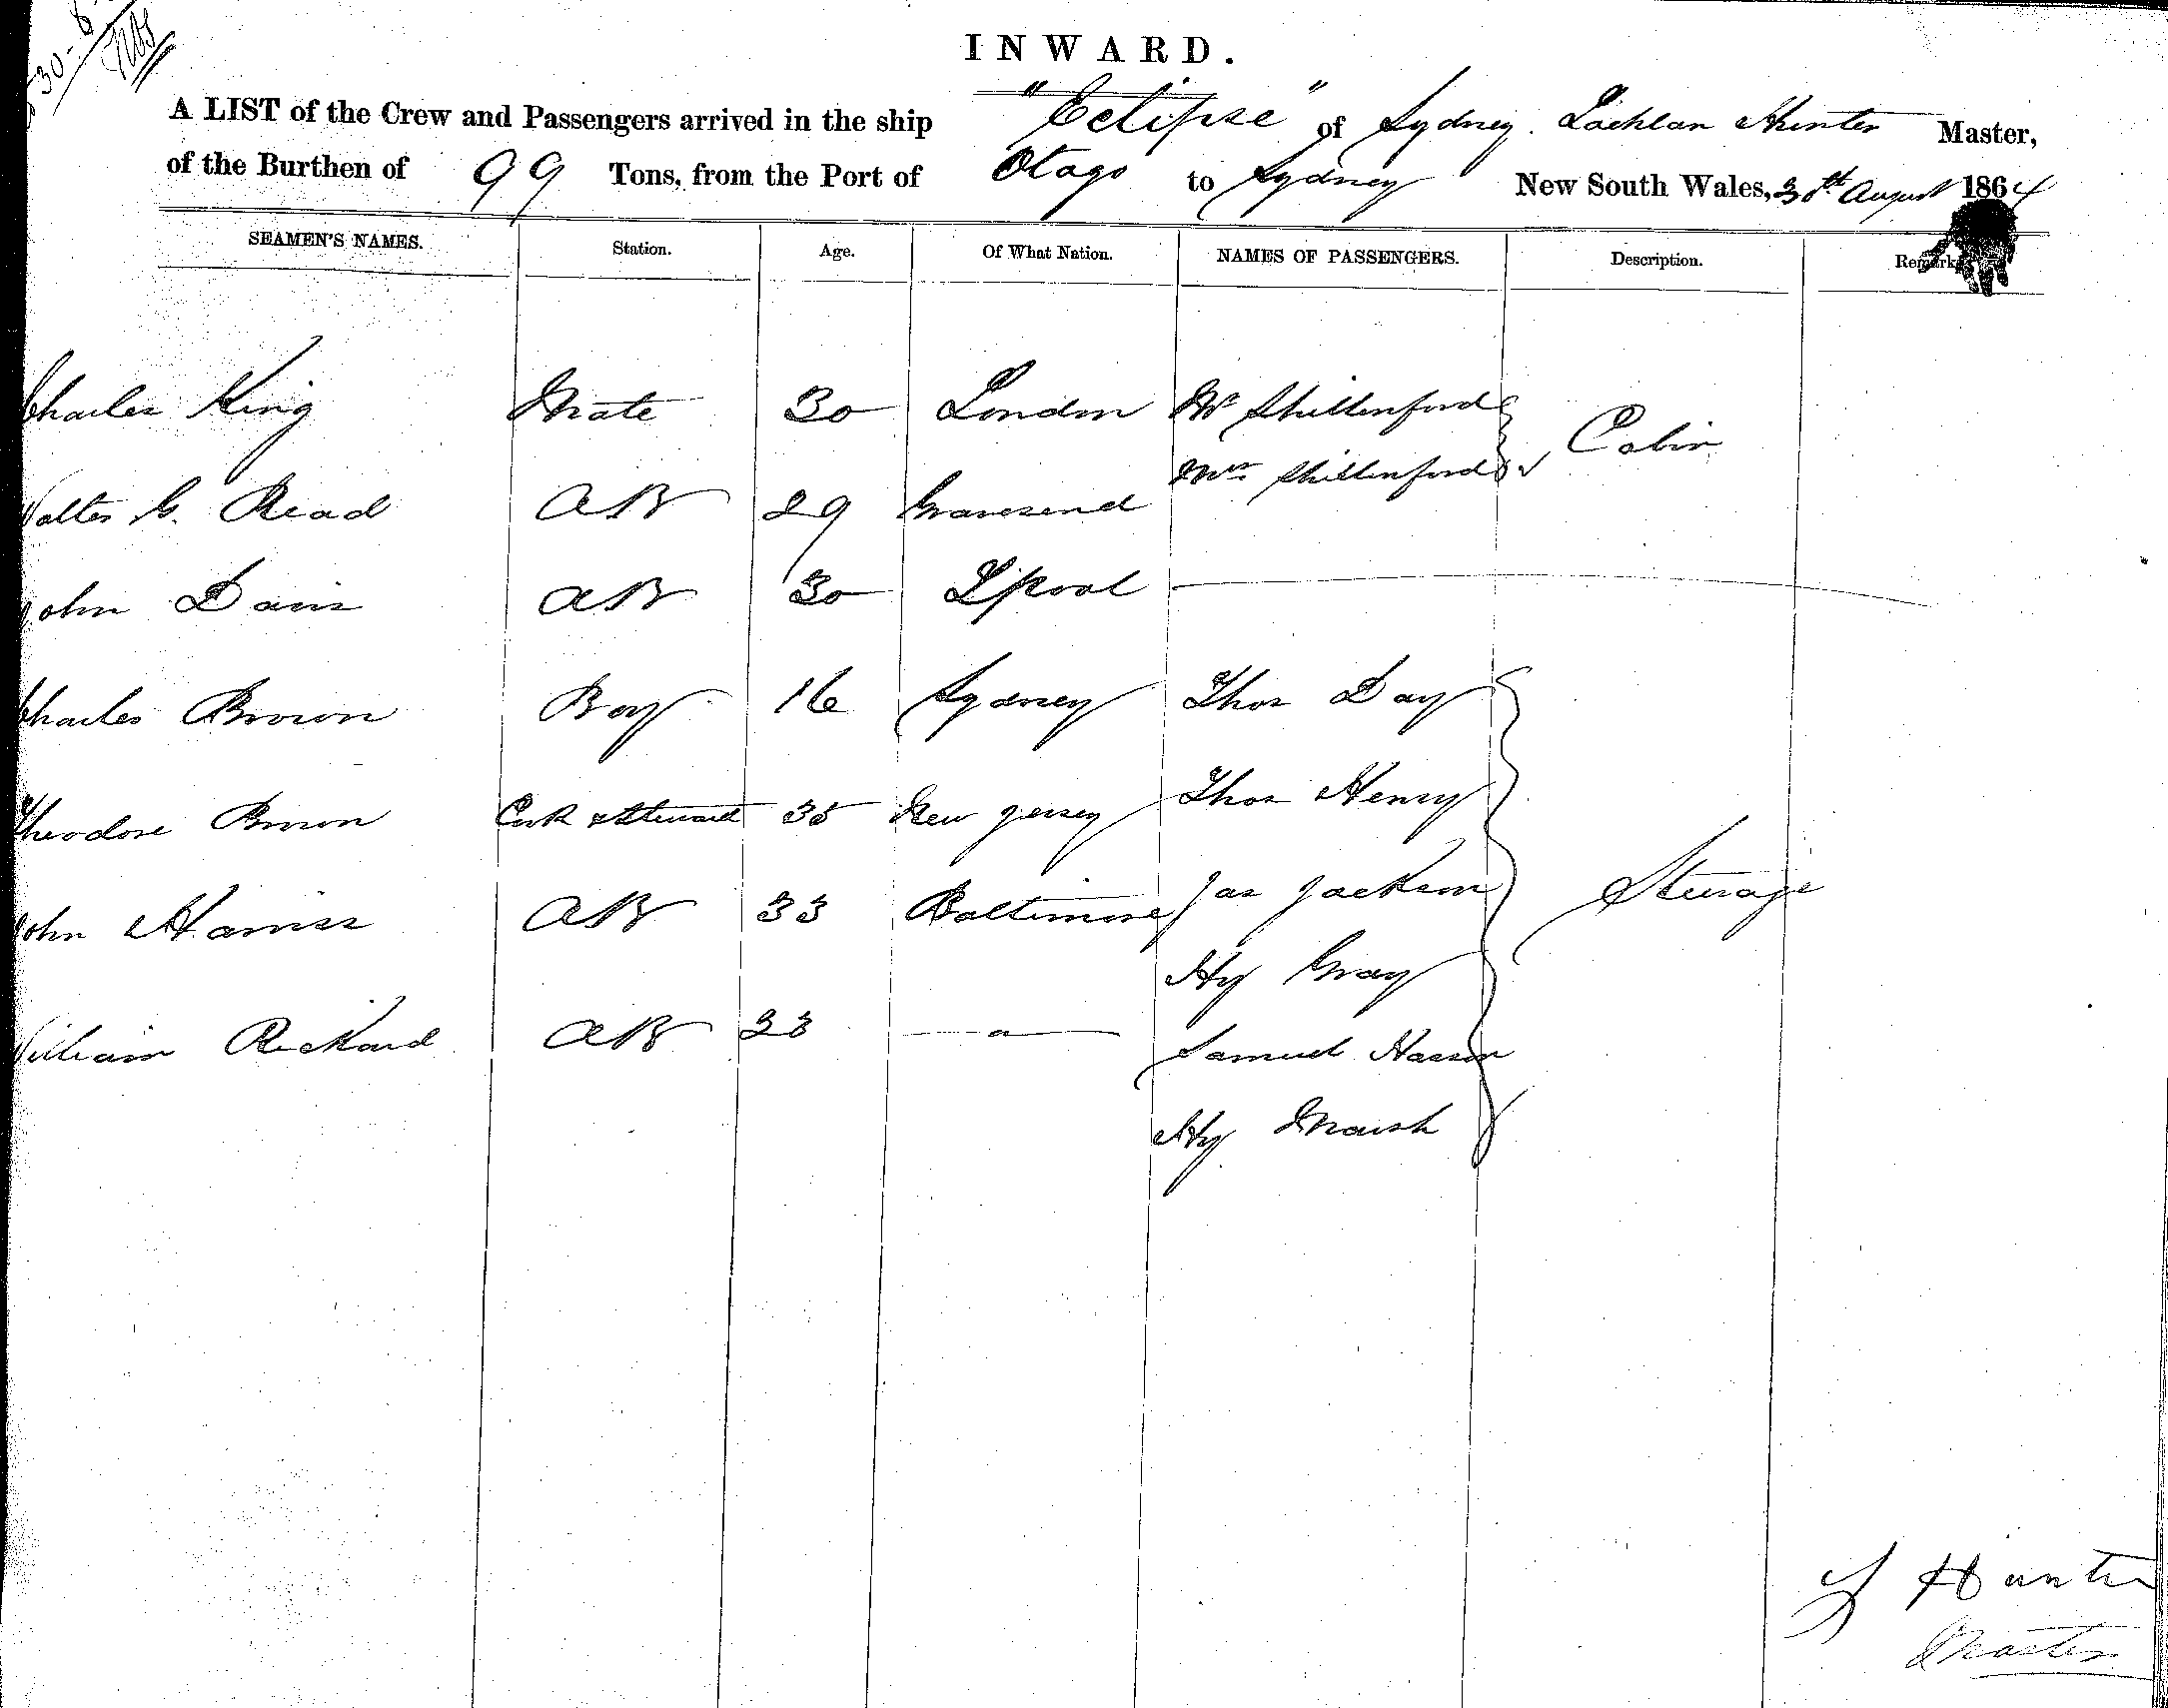 INWARD.
A LIST of the Crew and Passengers arrived in the ship "Eclipse" of Sydney. Lachlan Hunter Master,
of the Burthen of 99 Tons, from the Port of Otago to Sydney New South Wales, 30th August 1864
SEAMEN'S NAMES. Station. Age. Of What Nation. NAMES OF PASSENGERS. Description. Remarks
Charles King Mate 30 London Mr Shillenford Cabin
Mrs Shillenford
Walter G. Read AB 29 Gravesend
John Davis AB 30 Lpool
Charles Brown Boy 16 Sydney Thos Day
Theodore Brown Cook & Steward 35 New Jersey Thos Henry
John Harriss AB 33 Baltimore Jas Jackson Sturage
Hy Gray
William Rickard AB 23 Samuel
Hy Marsh
L Hunter
Master